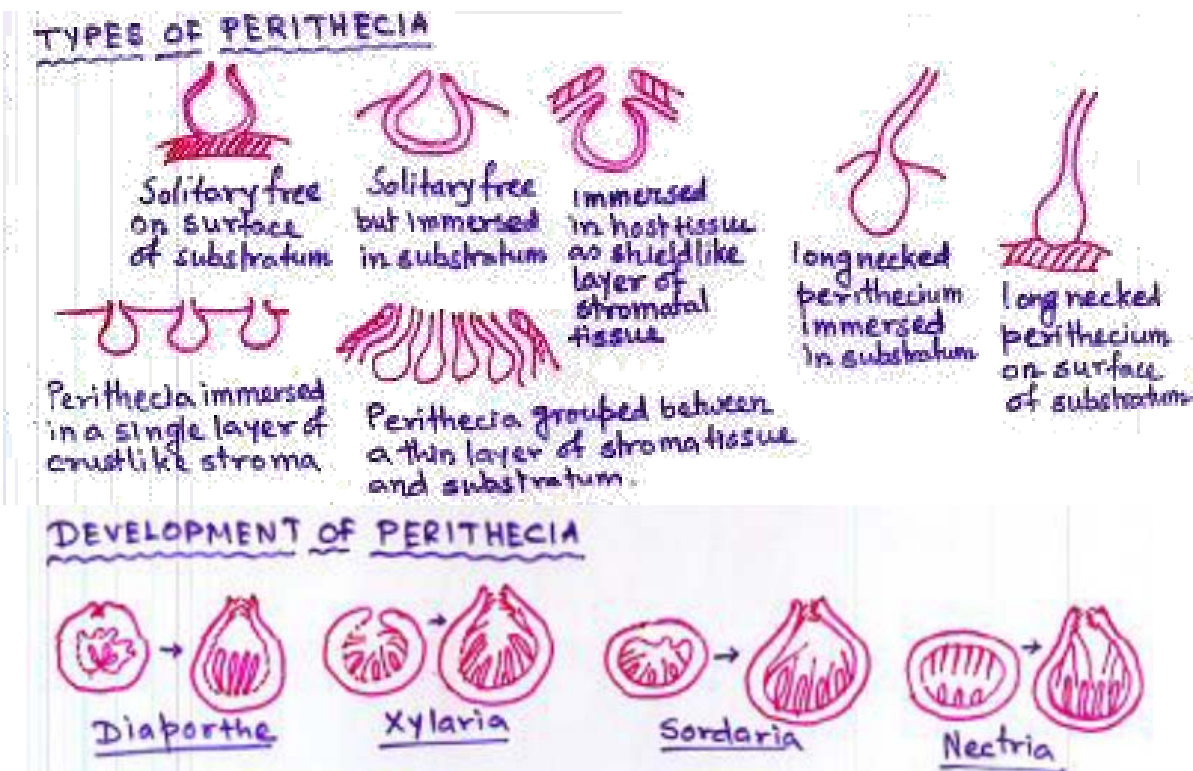 TYPES OF PERITHECIA
Solitary free
on surface
of substratum
Solitary free
but immersed
in substratum
immersed
in host tissue
as shieldlike
layer of
stromatal
tissue
longnecked
perithecium
immersed
in substratum
long necked
perithecium
on surface
of substratum
Perithecia immersed
in a single layer of
crustlike stroma
Perithecia grouped between
a thin layer of stroma tissue
and substratum.
DEVELOPMENT OF PERITHECIA
Diaporthe
Xylaria
Sordaria
Nectria